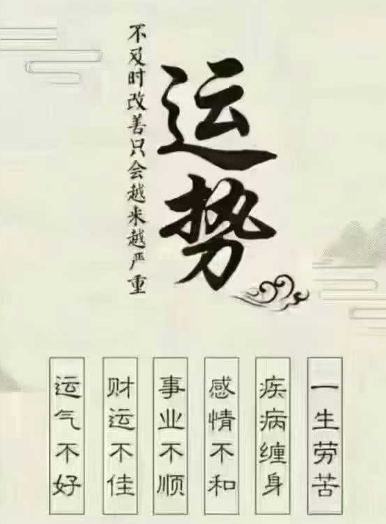 运势
不及时改善只会越来越严重
运气不好
财运不佳
事业不顺
感情不和
疾病缠身
一生劳苦